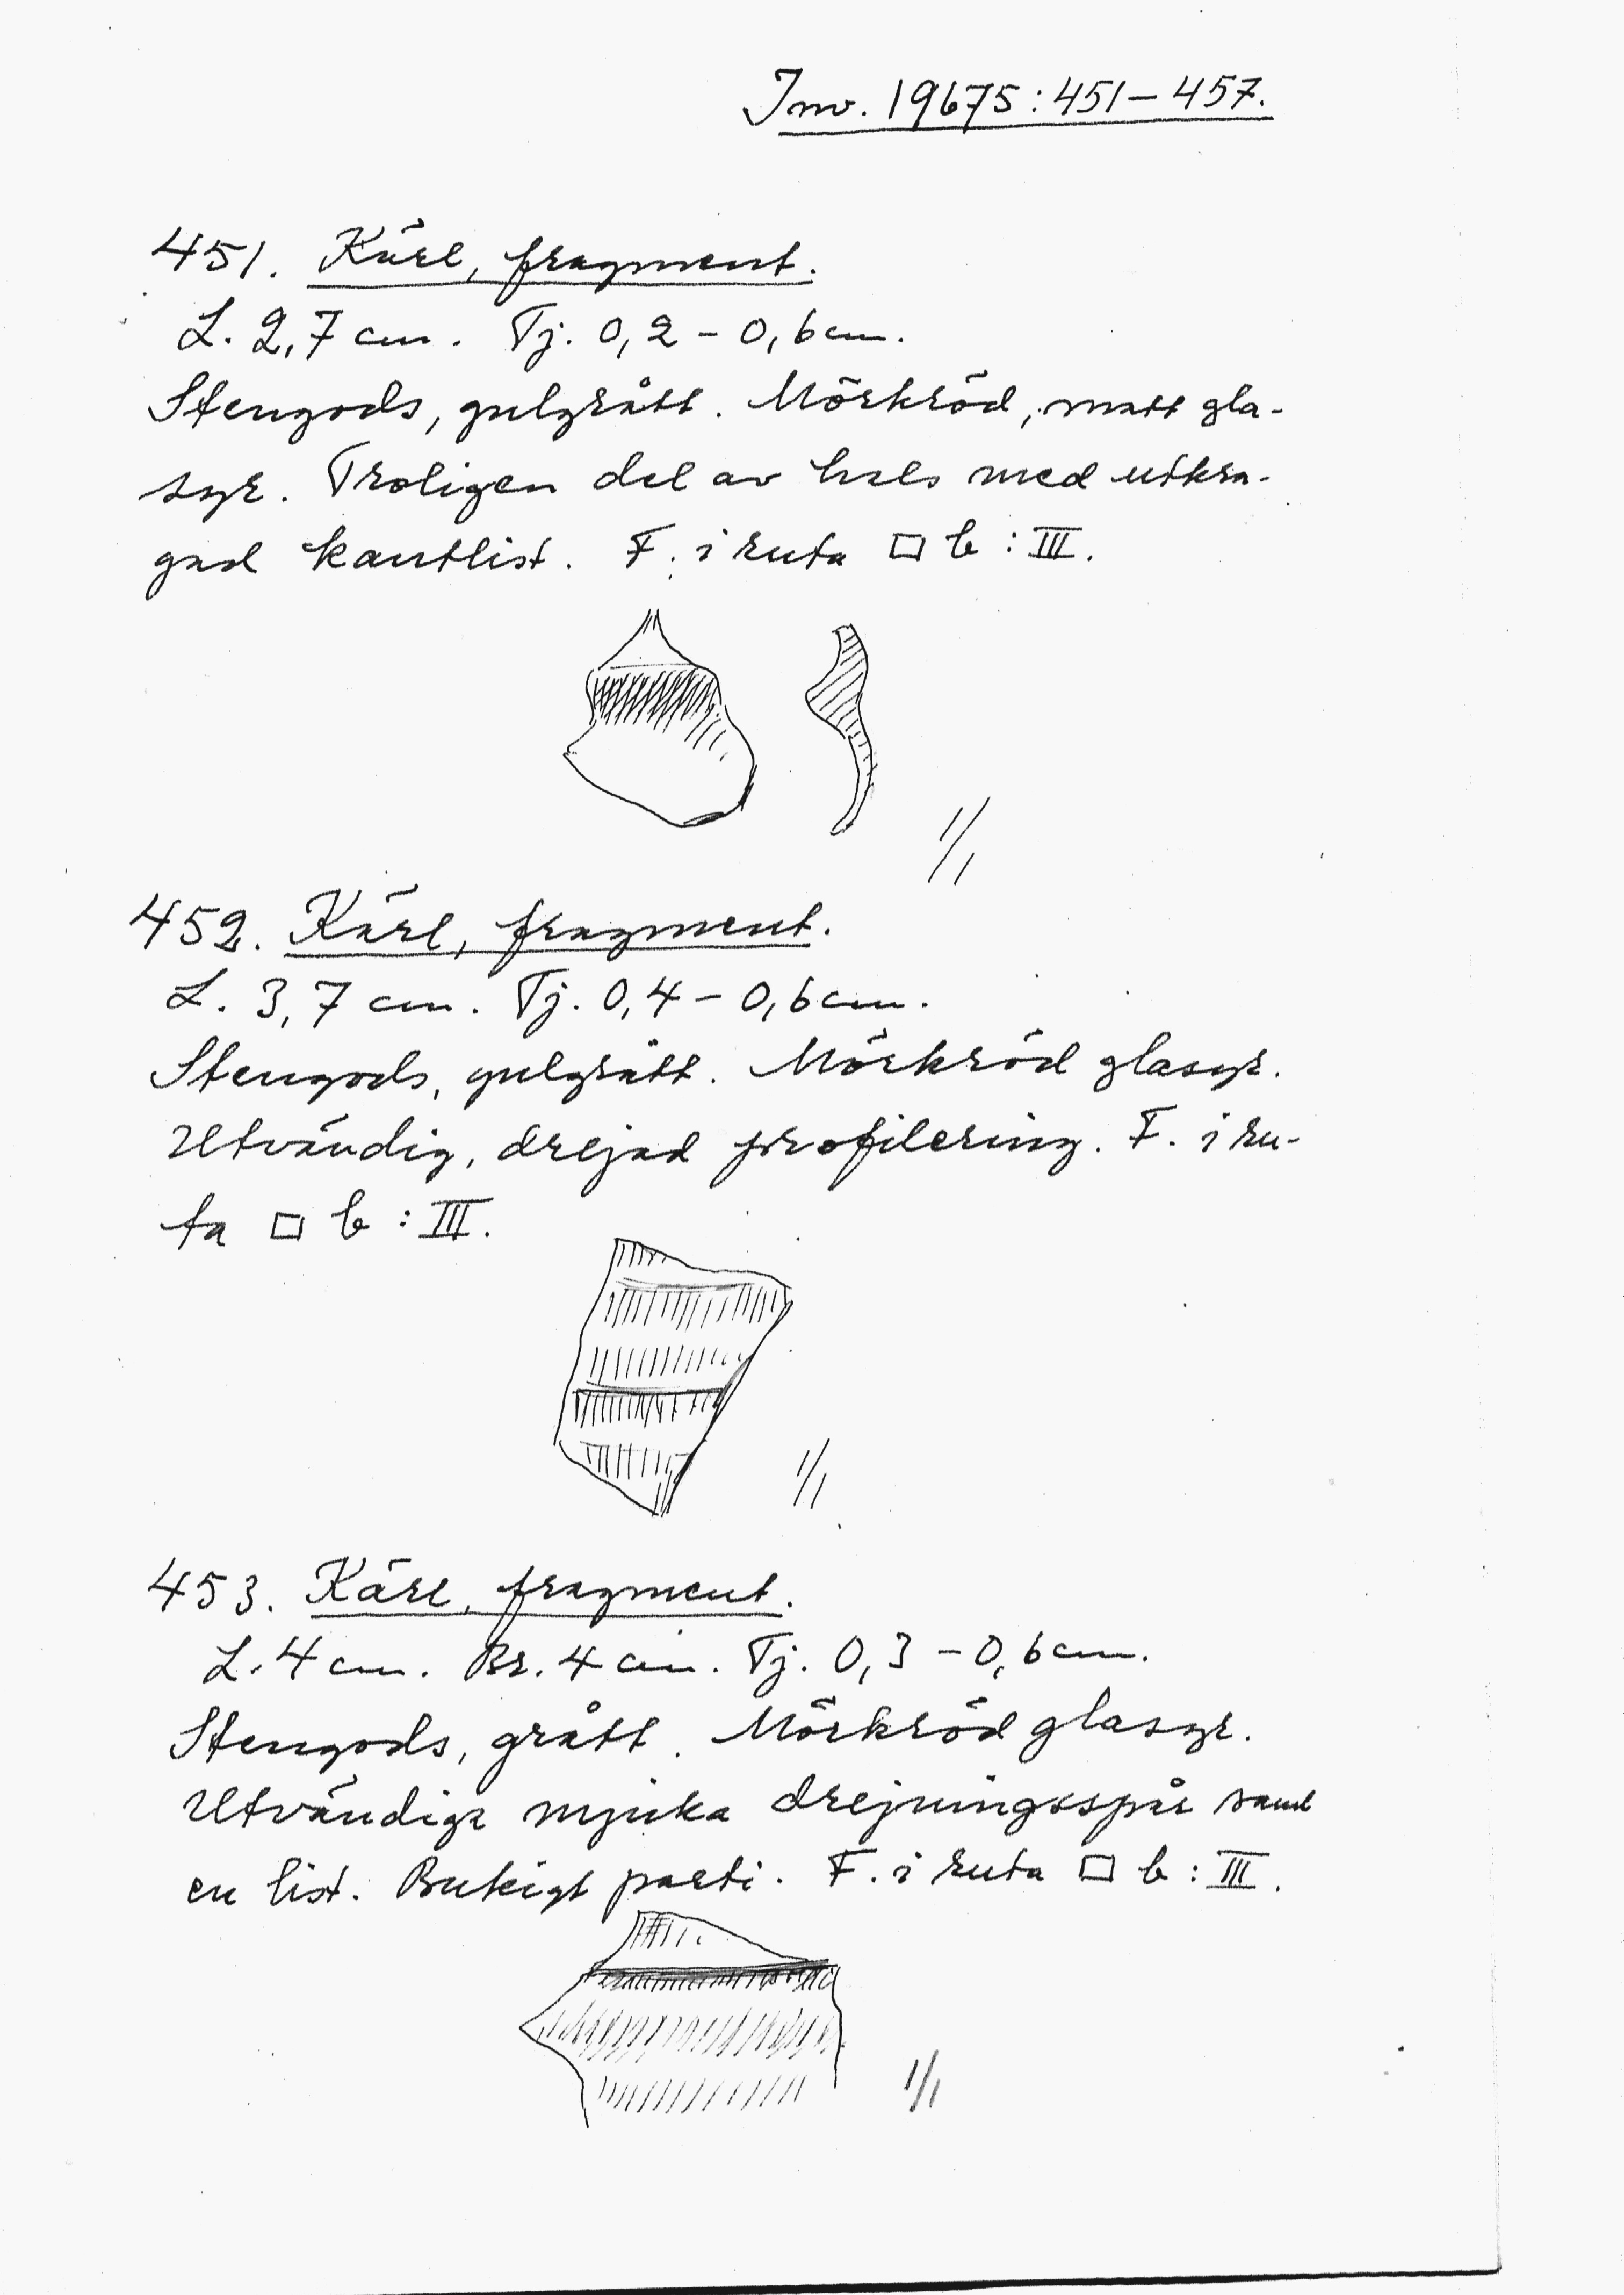 Inv. 19675:451–457.
451. Kärl, fragment.
L. 2,7 cm. Tj. 0,2 – 0,6 cm.
Stengods, gulgrått. Mörkröd, matt gla-
syr. Troligen del av hals med utkra-
gad kantlist. F. i ruta □ b : III.
1/1
452. Kärl, fragment.
L. 3,7 cm. Tj. 0,4 – 0,6 cm.
Stengods, gulgrått. Mörkröd glasyr.
Utvändig, drejad profilering. F. i ru-
ta □ b : III.
1/1
453. Kärl, fragment.
L. 4 cm. Br. 4 cm. Tj. 0,3 – 0,6 cm.
Stengods, grått. Mörkröd glasyr.
Utvändiga mjuka drejningsspår samt
en list. Bukigt parti. F. i ruta □ b : III.
1/1